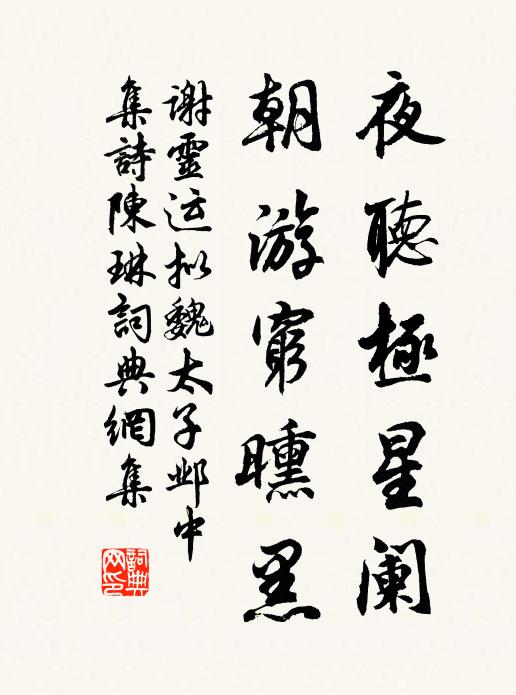 夜聽極星阑
朝游窮曛黑
謝靈运拟魏太子邺中
集詩陳琳詞典網集
詞典
网印